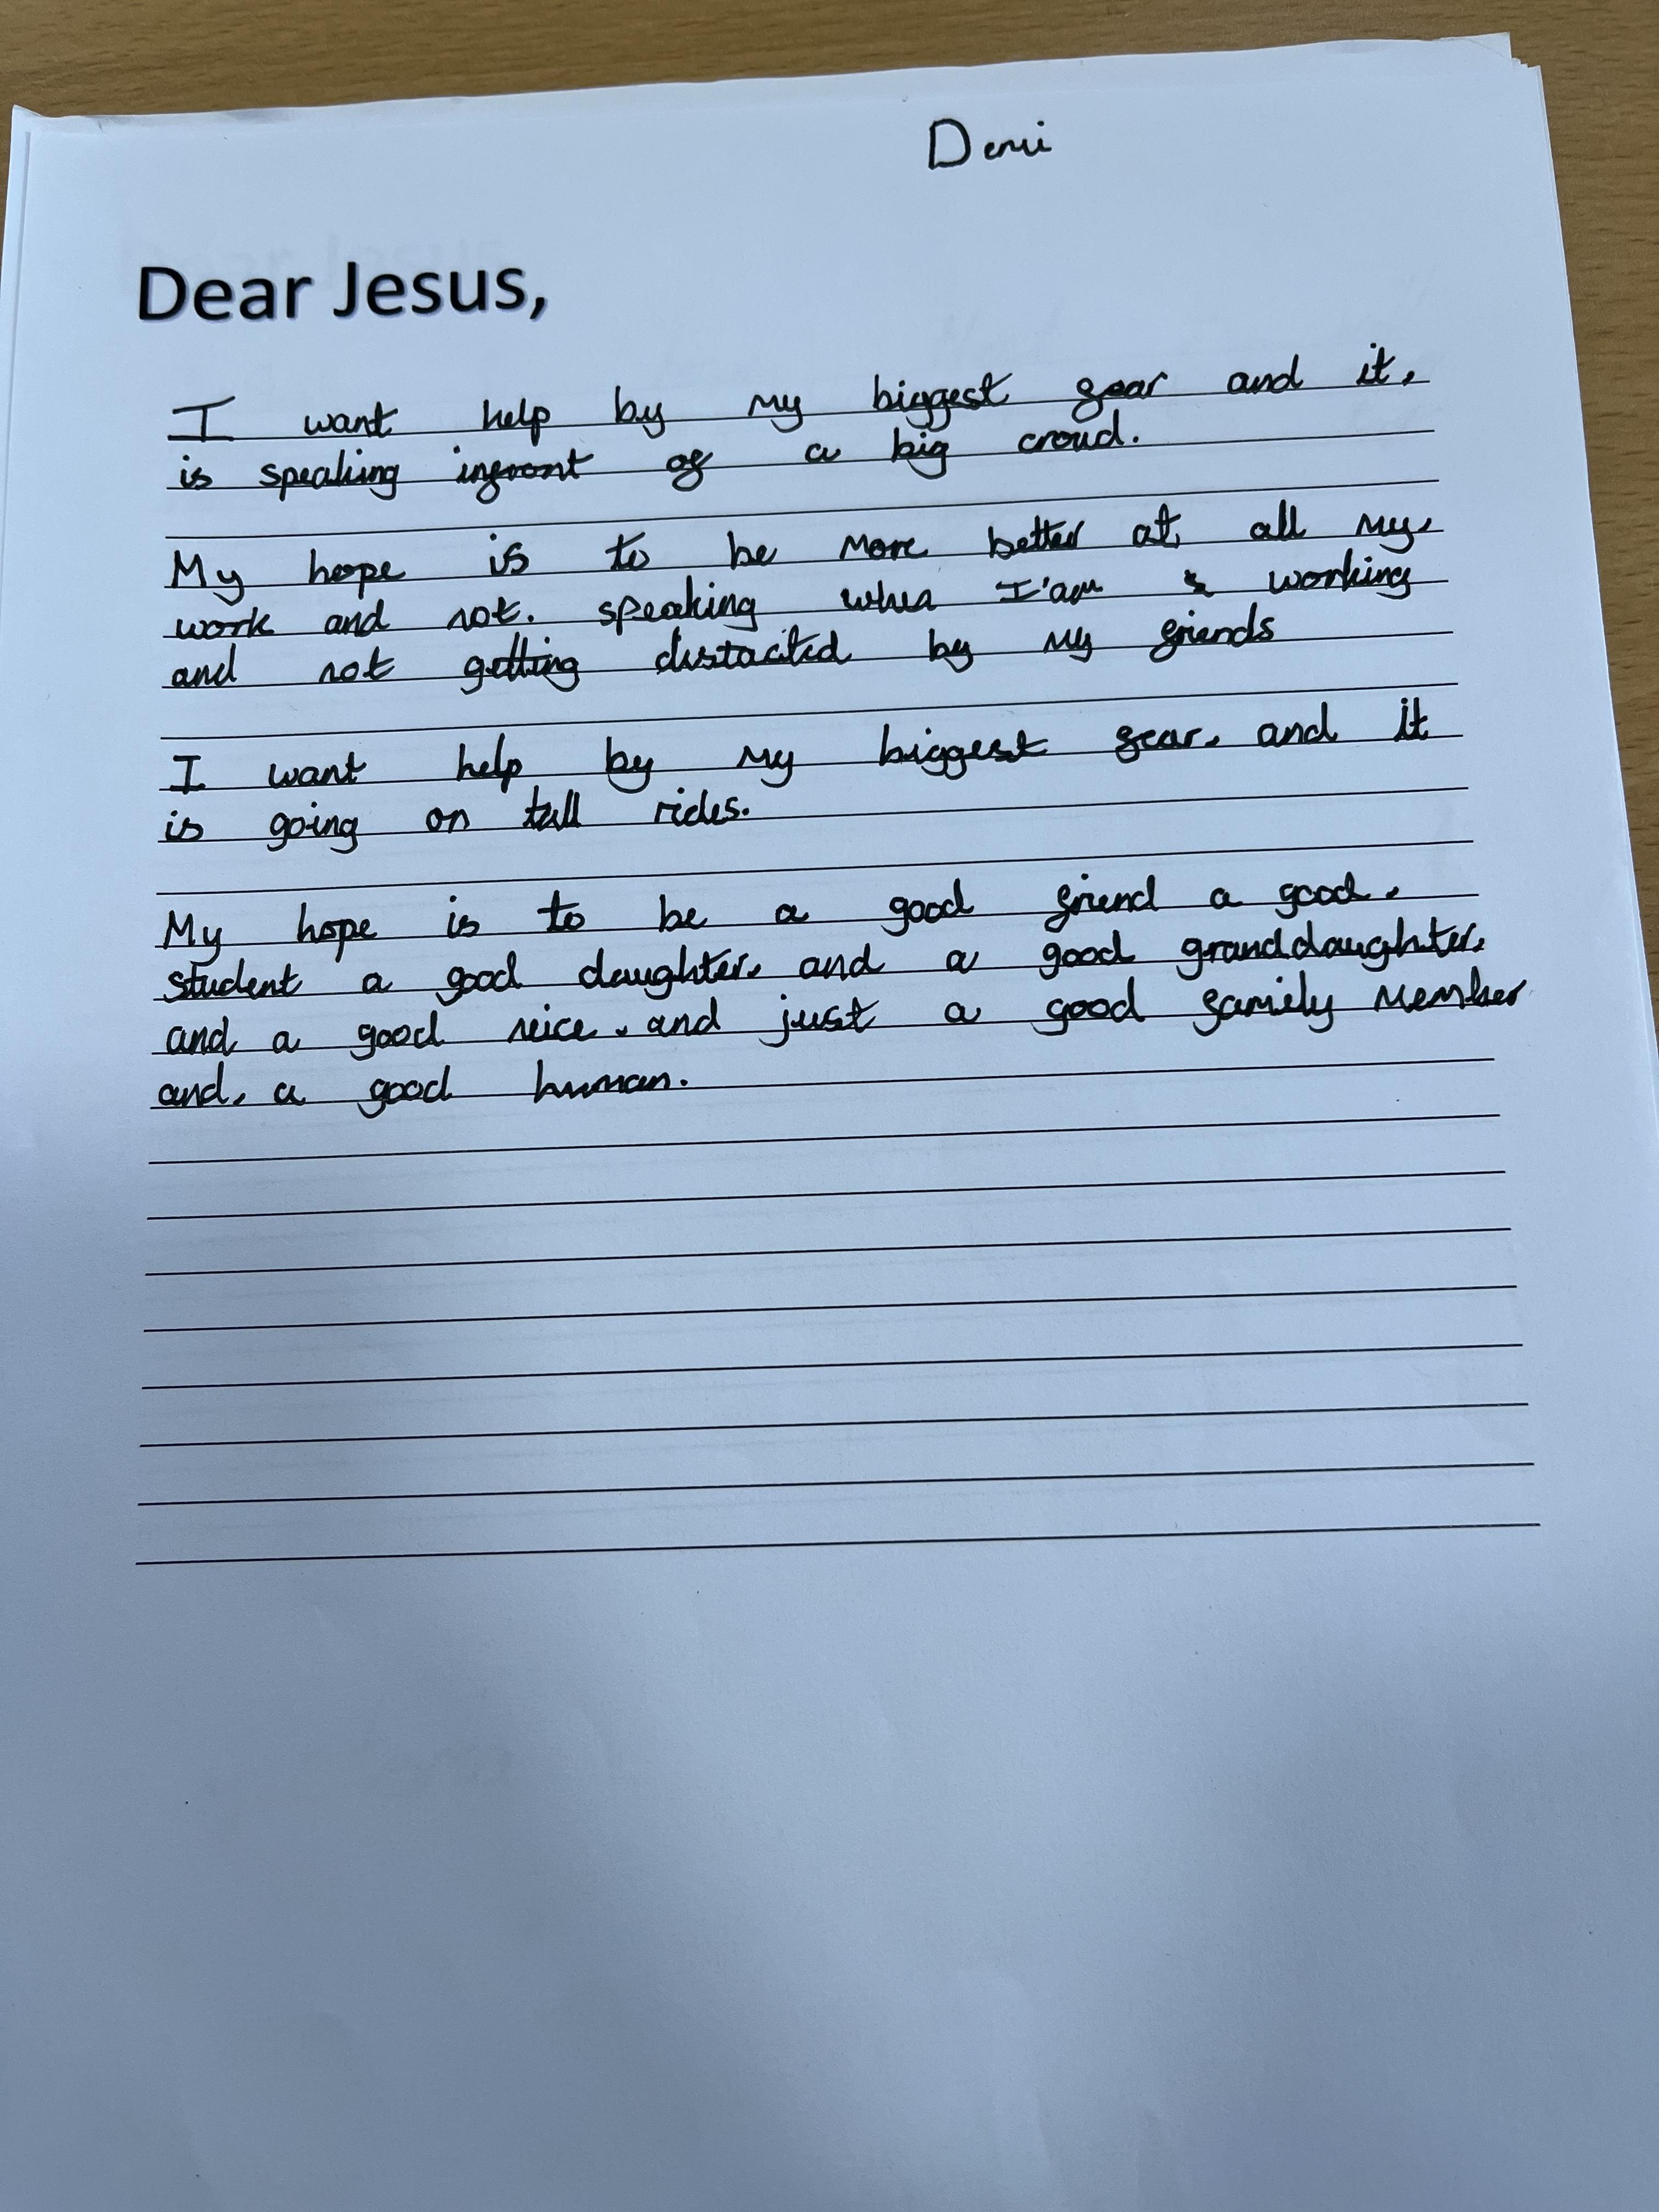 Demi
Dear Jesus,
I want help by my biggest fear and it,
is speaking infront of a big croud.
My hope is to be more better at all my,
work and not. speaking when I'am working
and not getting distacted by my friends
I want help by my biggest fear, and it
is going on tall rides.
My hope is to be a good friend a good,
student a good daughter, and a good granddaughter,
and a good neice, and just a good famiely member
and, a good human.